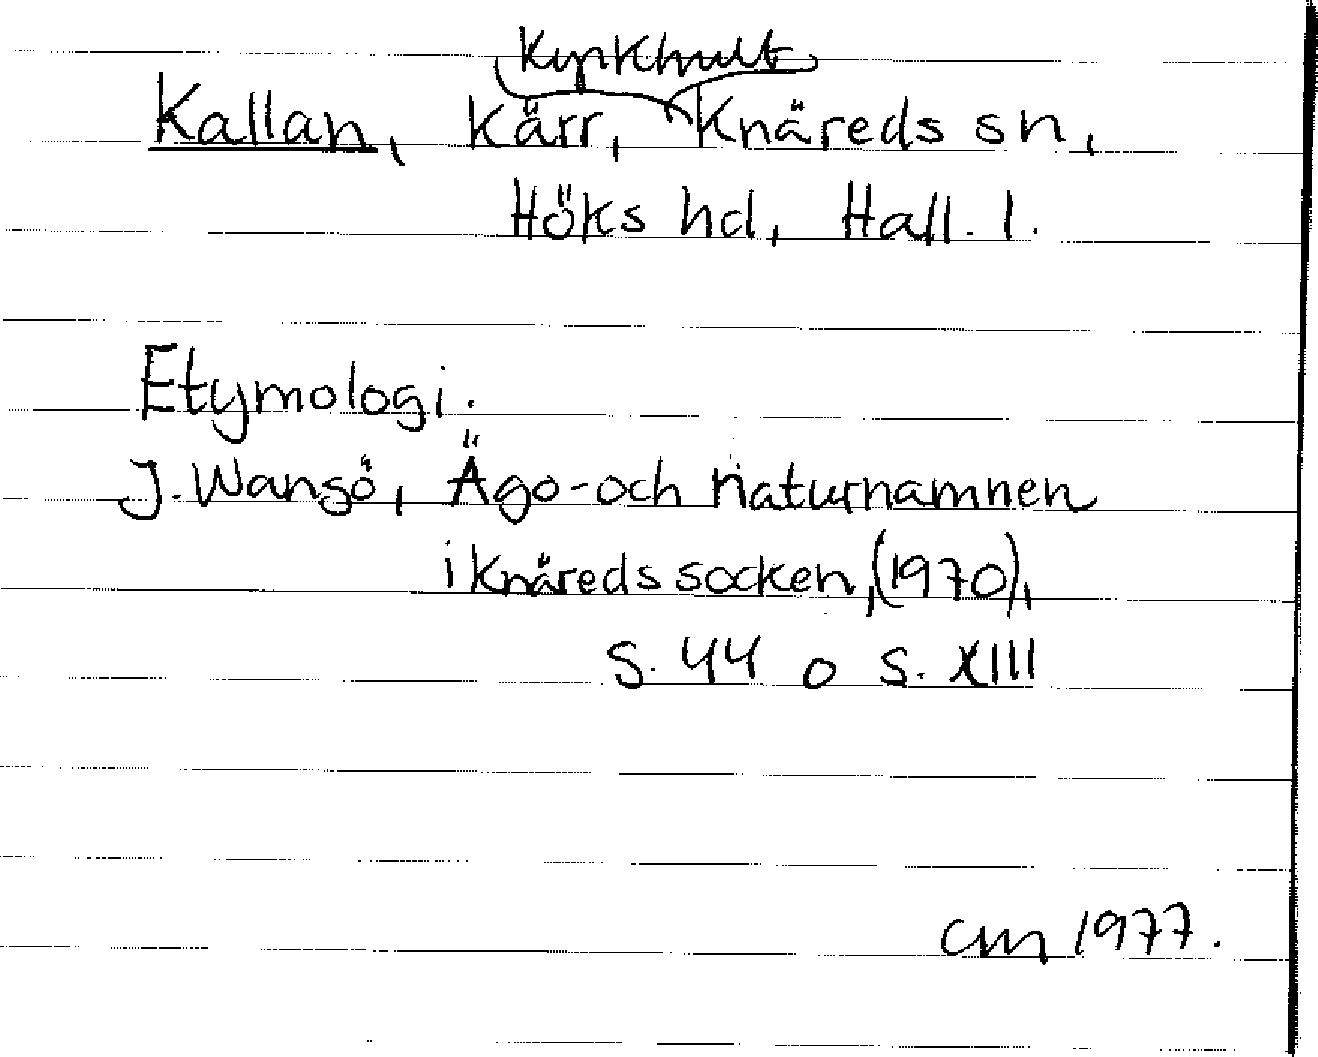 Kyrkhult
Kallan, kärr, Knäreds sn,
Höks hd, Hall. l.
Etymologi.
J. Wangö, Ägo- och naturnamnen
i Knäreds socken, (1970),
s. 44 o s. XIII
CM 1977.